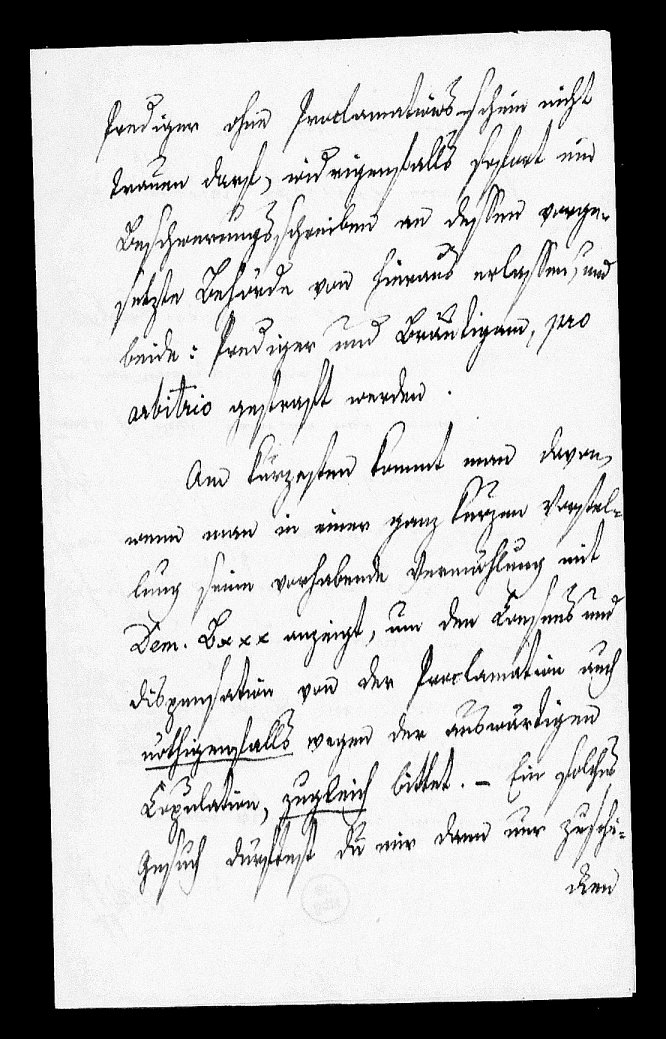 Prediger ohne Proclamations-schein nicht
trauen darf, widrigenfalls sofort ein
Beschwerungsschreiben an dessen vorge-
setzte Behörde von hieraus erlassen, und
beide: Prediger und Bräutigam, pro
arbitrio gestraft werden.
Am kürzesten kommt man davon,
wenn man in einer ganz kurzen Vorstel-
lung seine vorhabende Vermählung mit
Dem. Bxxx anzeigt, um den Consens und
dispensation von der Proclamation auch
nöthigenfalls wegen der auswärtigen
Copulation, zugleich bittet. – Ein solches
Gesuch dürftest du mir dann nur zuschi-
cken